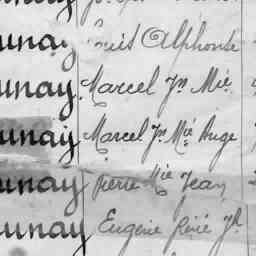 unay Louis Alphonse
unay Marcel Jn Mie
unay Marcel Jn Mie Ange
unay Pierre Mie Jean
unay Eugène René Jh